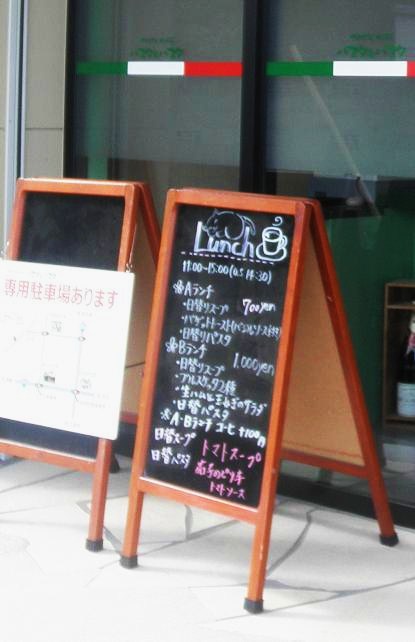 専用駐車場あります
Lunch
11:00~15:00(o.s 14:30)
Aランチ 700yen
・日替りスープ
・バゲットトースト
・日替りパスタ
Bランチ 1.000yen
・日替りスープ
・ブルスケッタ2種
・生ハムと玉ねぎのサラダ
・日替パスタ
※A・Bランチ コーヒー+100円
日替スープ トマトスープ
日替パスタ
トマトソース